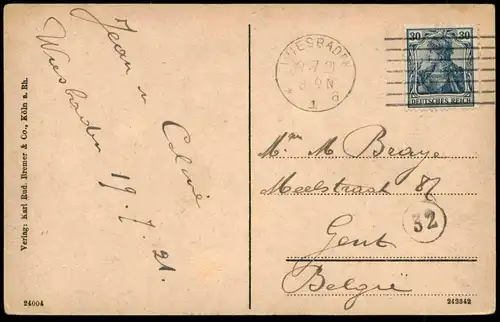 Jean u Celine
Wiesbaden 19.7.21.
Verlag: Karl Rud. Bremer & Co., Köln a. Rh.
24004
WIESBADEN
7.21
8-9 N
1 a
30 30
DEUTSCHES REICH
M. Braye
Meelstraat 87
32
Gent
België
242342